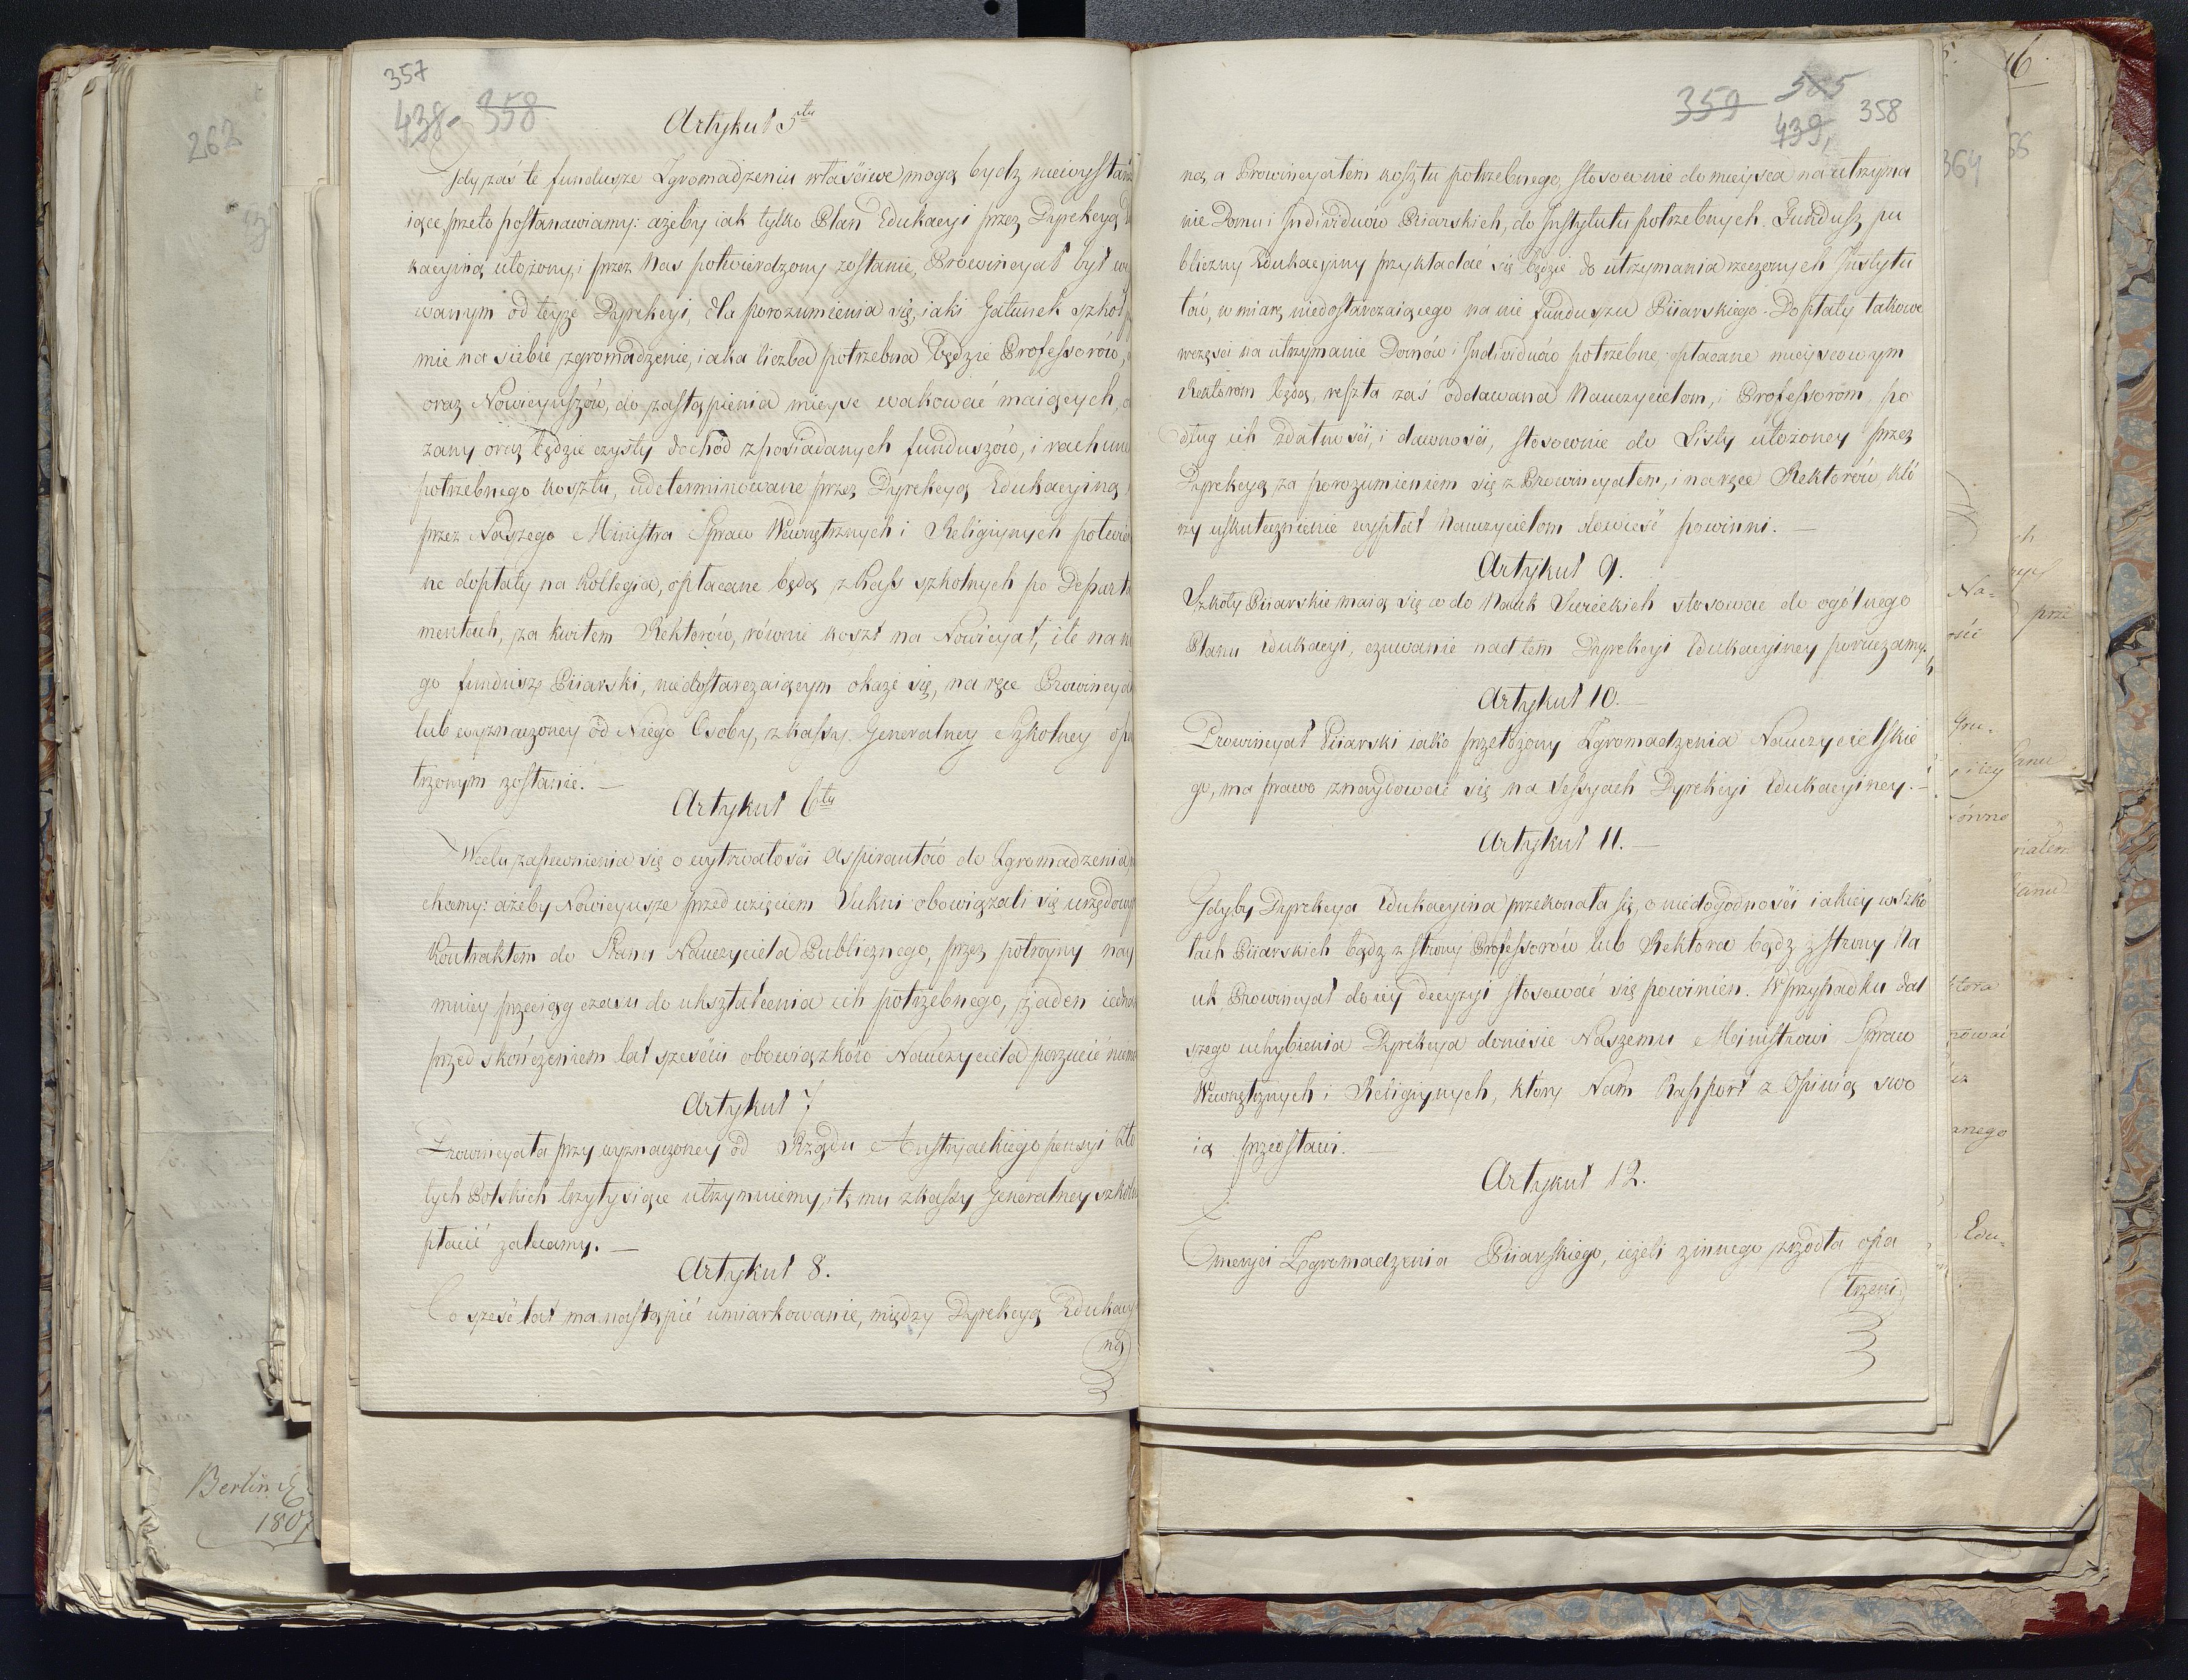 262
Berlin d
1807
357
438- 358
Artykuł 5ty
Gdy zaś te fundusze Zgromadzeniu właściwe mogą bydz niewystar
iące, przeto postanawiamy: ażeby iak tylko Plan Edukacyi przez Dyrekcyą
kacyiną ułożony, i przez Nas potwierdzony zostanie, Prowincyał był we
wanym od teyże Dyrekcyi, dla porozumienia się, iaki Gatunek szkół
mie na siebie zgromadzenie, iaka liczba potrzebna będzie Professorów,
oraz Nowicyuszów, do zastąpienia mieysc wakować maiących,
zany oraz będzie czysty dochód z posiadanych funduszów, i rachun
potrzebnego kosztu, udeterminowane przez Dyrekcyą Edukacyiną
przez Naszego Ministra Spraw Wewnętrznych i Religiynych potwier
ne dopłaty na Kollegia, opłacane będą z Kass szkolnych po Departa
mentach, za kwitem Rektorów, równie koszt na Nowicyat, ile na n
go fundusz Piiarski, niedostarczaiącym okaże się, na ręce Prowincya
lub wyznaczoney od Niego Osoby, z kassy Generalney Szkolney opa
trzonym zostanie. —
Artykuł 6ty
W celu zapewnienia się o wytrwałości Aspirantów do Zgromadzenia,
chcemy: ażeby Nowicyusze przed wzięciem Sukni obowiązali się urzędowy
Kontraktem do Stanu Nauczyciela Publicznego, przez potroyny nay
mniey przeciąg czasu do ukształcenia ich potrzebnego, żaden iedna
przed skończeniem lat sześciu obowiązków Nauczyciela porzucić niemo
Artykuł 7
Prowincyała przy wyznaczoney od Rządu Austryackiego pensyi Zło
tych Polskich trzy tysiące utrzymuiemy, i tę mu z kassy Generalney szkoln
płacić zalecamy. —
Artykuł 8.
Co sześć lat ma nastąpić umiarkowanie, między Dyrekcyą Edukacyi
ną
359 505
439, 358
ną, a Prowincyałem kosztu potrzebnego stosownie do mieysca na utrzyma
nie Domu i Individuów Piiarskich, do Instytutu potrzebnych. Fundusz pu
bliczny Edukacyiny przykładać się będzie do utrzymania rzeczonych Instytu
tów, w miarę niedostarczaiącego na nie funduszu Piiarskiego. Dopłaty takowe
w części na utrzymanie Domów i Individuów potrzebne, opłacane mieyscowym
Rektorom będą, reszta zaś oddawana Nauczycielom, i Professorom, po
dług ich zdatności, i dawności, stosownie do Listy ułożoney przez
Dyrekcyą za porozumieniem się z Prowincyałem, i na ręce Rektorów, któ
rzy uskutecznienie wypłat Nauczycielom dowieść powinni. —
Artykuł 9.
Szkoły Piiarskie maią się co do Nauk Świeckich stosować do ogólnego
Planu Edukacyi, czuwanie nad tem Dyrekcyi Edukacyiney poruczamy.
Artykuł 10. —
Prowincyał Piiarski iako przełożony Zgromadzenia Nauczycielskie
go, ma prawo znaydować się na Sessyach Dyrekcyi Edukacyiney. —
Artykuł 11. —
Gdyby Dyrekcya Edukacyina przekonała się, o niedogodności iakiey w Szko
łach Piiarskich bądz z strony Professorów lub Rektora bądz z strony Na
uk, Prowincyał do iey decyzyi stosować się powinien. W przypadku dal
szego uchybienia Dyrekcya doniesie Naszemu Ministrowi Spraw
Wewnętrznych i Religiynych, który Nam Rapport z Opinią swo
ią przedstawi. —
Artykuł 12.
Emeryci Zgromadzenia Piiarskiego, ieżeli z innego zrzódła opa
trzeni
364
Na-
ości
prze
Gru-
i iey
równo
ktora
anego
Edu-